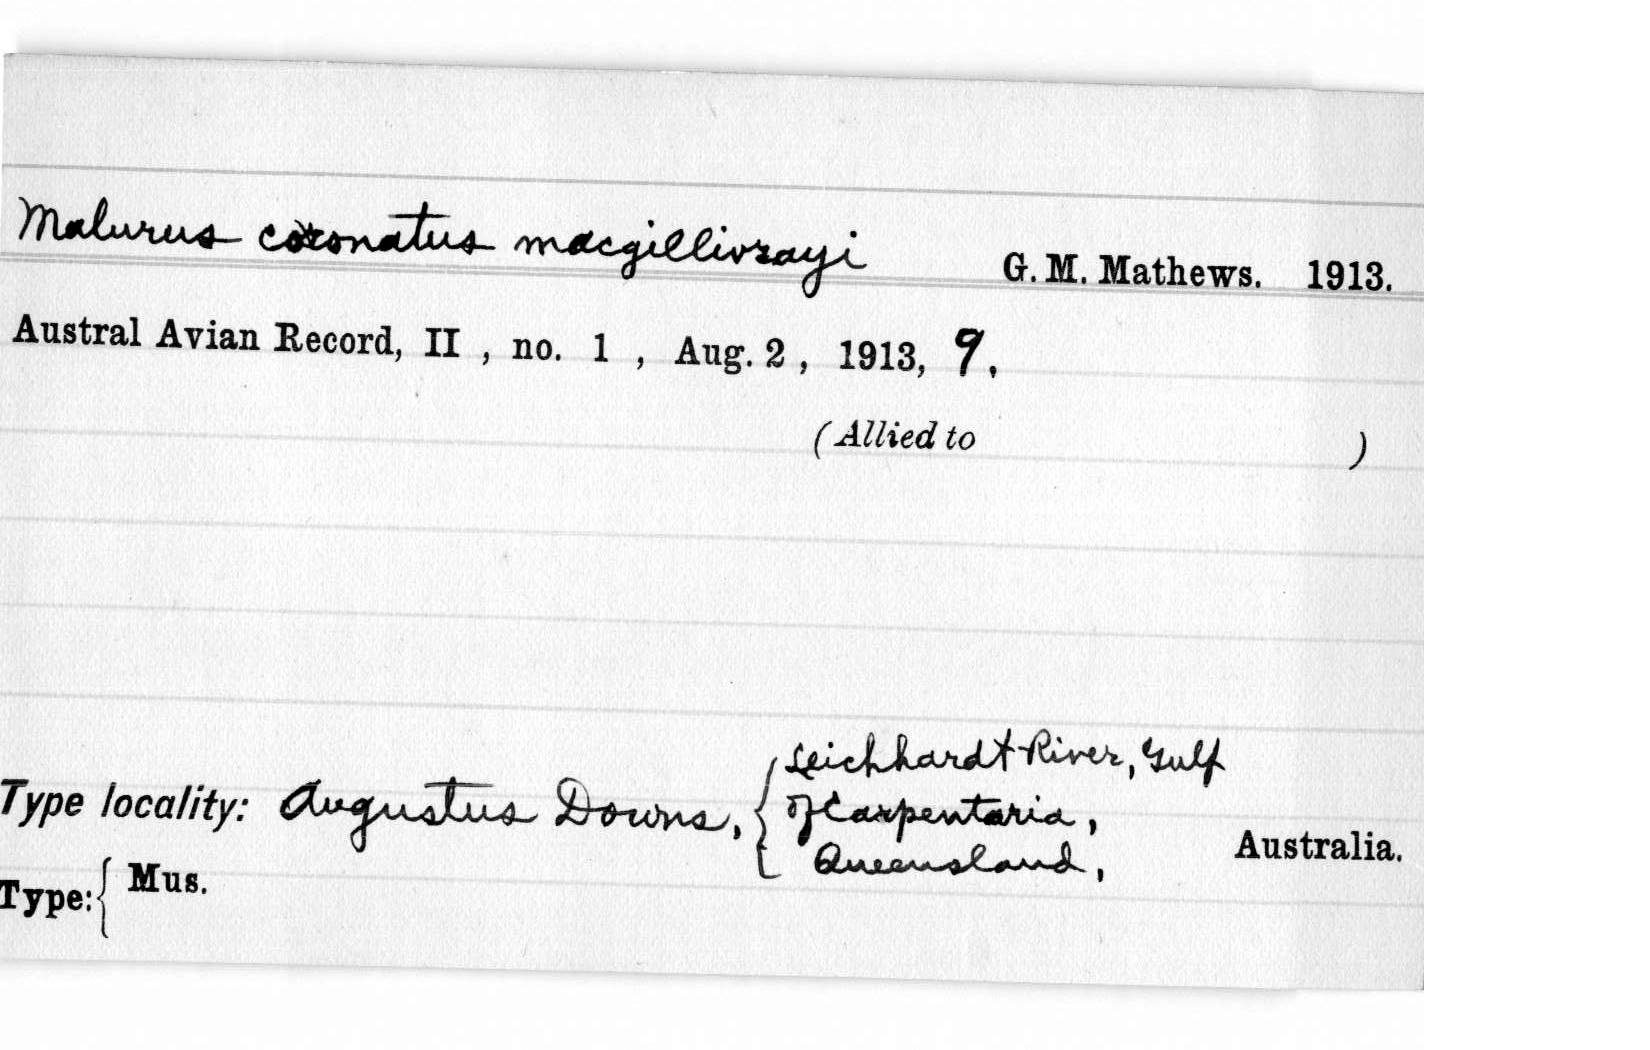 Malurus coronatus macgillivrayi G. M. Mathews. 1913.
Austral Avian Record, II , no. 1 , Aug. 2 , 1913, 9.
(Allied to )
Type locality: Augustus Downs, { Leichhardt River, Gulf
of Carpentaria,
Queensland, Australia.
Type: { Mus.